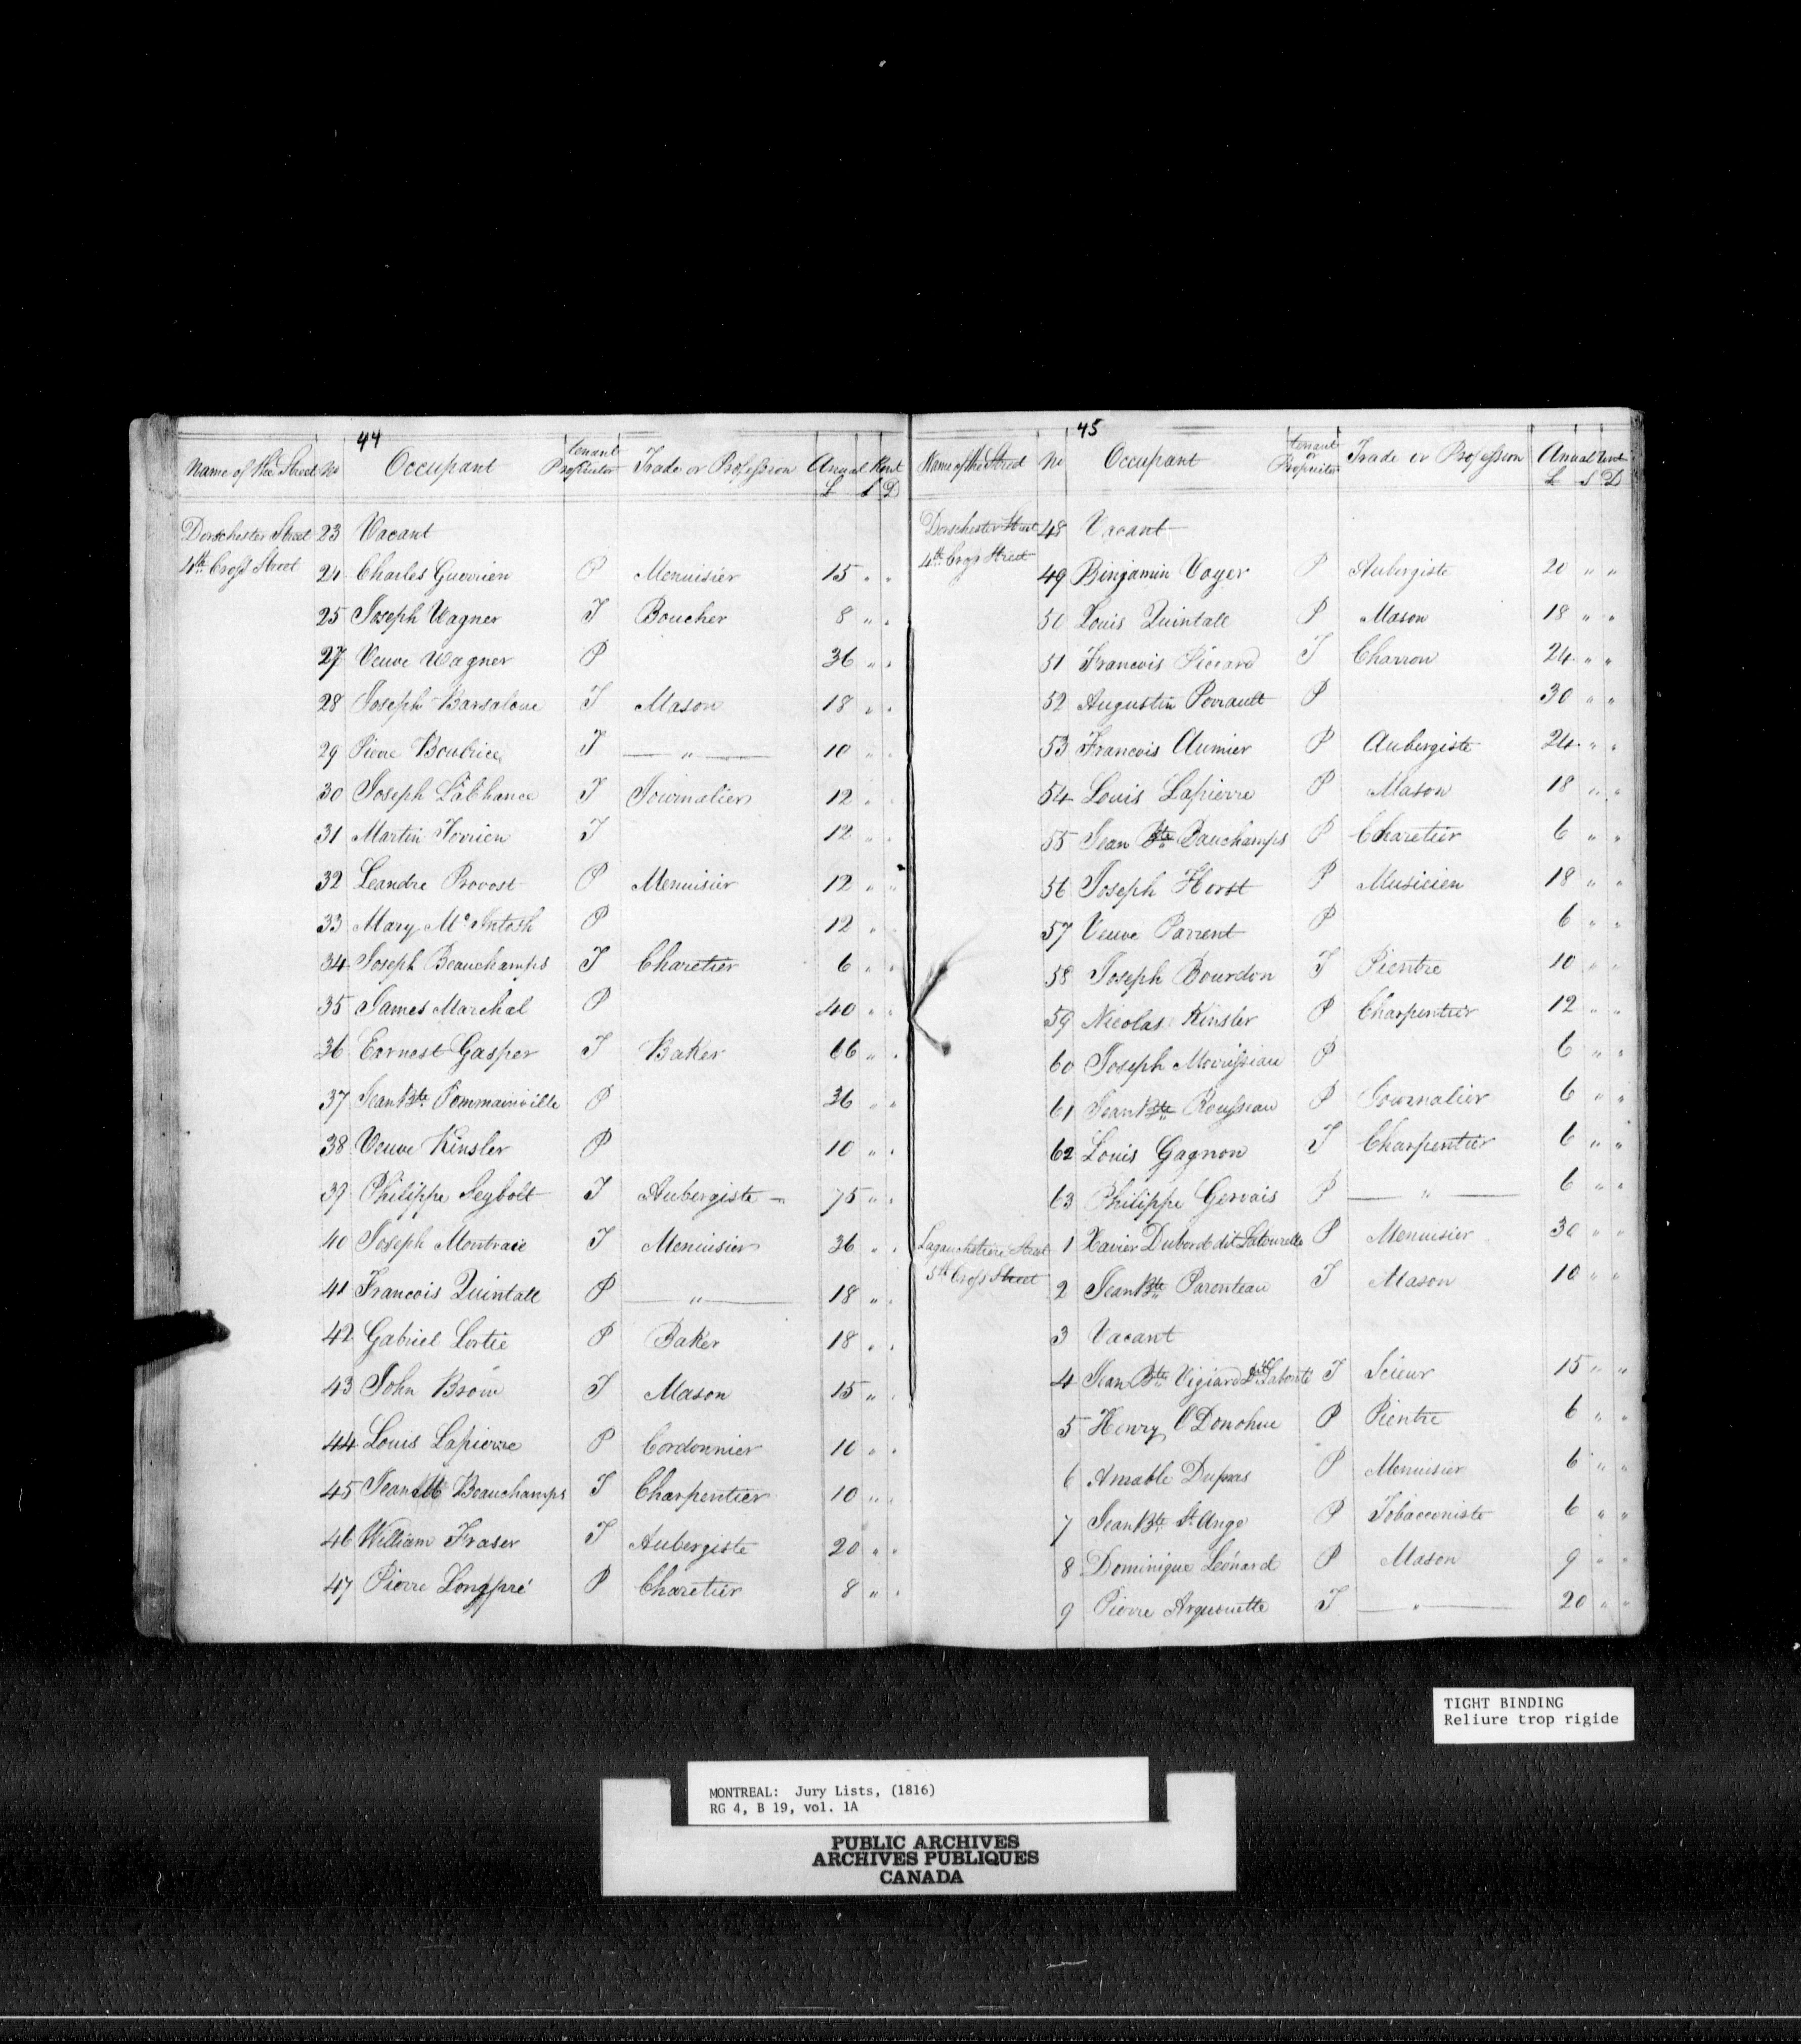 44
Name of the Street No Occupant tenant Propriitor Trade or Profession Anual Rent
£ S D
Dorschester Street 23 Vacant
4th Cross Street 24 Charles Guerrien P Menuisier 15 " "
25 Joseph Wagner T Boucher 8 " "
27 Veuve Wagner P 36 " "
28 Joseph Barsaloue T Mason 18 " "
29 Pierre Boutrice T " 10 " "
30 Joseph LaChance T Journalier 12 " "
31 Martin Torrien T 12 " "
32 Leandre Provost P Menuisier 12 " "
33 Mary Mc Intosh P 12 " "
34 Joseph Beauchamps T Charetier 6 " "
35 James Marchal P 40 " "
36 Earnest Gasper T Baker 66 " "
37 Jean Bte Pommainville P 36 " "
38 Veuve Kinsler P 10 " "
39 Philippe Seybolt T Aubergiste 75 " "
40 Joseph Montraie T Menuisier 36 " "
41 Francois Quintall P " 18 " "
42 Gabriel Lortie P Baker 18 " "
43 John Brown T Mason 15 " "
44 Louis Lapierre P Cordonnier 10 " "
45 Jean Beauchamps T Charpentier 10 " "
46 William Fraser T Aubergiste 20 " "
47 Pierre Longpré P Charetier 8 " "
45
Name of the Street No Occupant tenant or Propriitor Trade or Profession Anual Rent
£ S D
Dorschester Street 48 Vacant
4th Cross Street 49 Binjamin Voyer P Aubergiste 20 " "
50 Louis Quintall P Mason 18 " "
51 Francois Piccard T Charron 24 " "
52 Augustin Perrault P 30 " "
53 Francois Aumier P Aubergiste 24 " "
54 Louis Lapierre P Mason 18 " "
55 Jean Bte Bauchamps P Charetier 6 " "
56 Joseph Horst P Musicien 18 " "
57 Veuve Parrent P 6 " "
58 Joseph Bourdon T Pientre 10 " "
59 Nicolas Kinsler P Charpentier 12 " "
60 Joseph Morrissiau P 6 " "
61 Jean Bte Rousseau P Journalier 6 " "
62 Louis Gagnon T Charpentier 6 " "
63 Philippe Gervais P " 6 " "
Lagauchetiere Street 1 Xavier Dubord dit Latourelle P Menuisier 30 " "
5th Cross Street 2 Jean Bte Parenteau T Mason 10 " "
3 Vacant
4 Jean Bte Vigiard dit Labonté T Scieur 15 " "
5 Henry O'Donohue P Pientre 6 " "
6 Amable Dupras P Menuisier 6 " "
7 Jean Bte St Ange P Tobacconiste 6 " "
8 Dominique Léonard P Mason 9 " "
9 Pierre Arquouette T " 20 " "
TIGHT BINDING
Reliure trop rigide
MONTREAL: Jury Lists, (1816)
RG 4, B 19, vol. 1A
PUBLIC ARCHIVES
ARCHIVES PUBLIQUES
CANADA